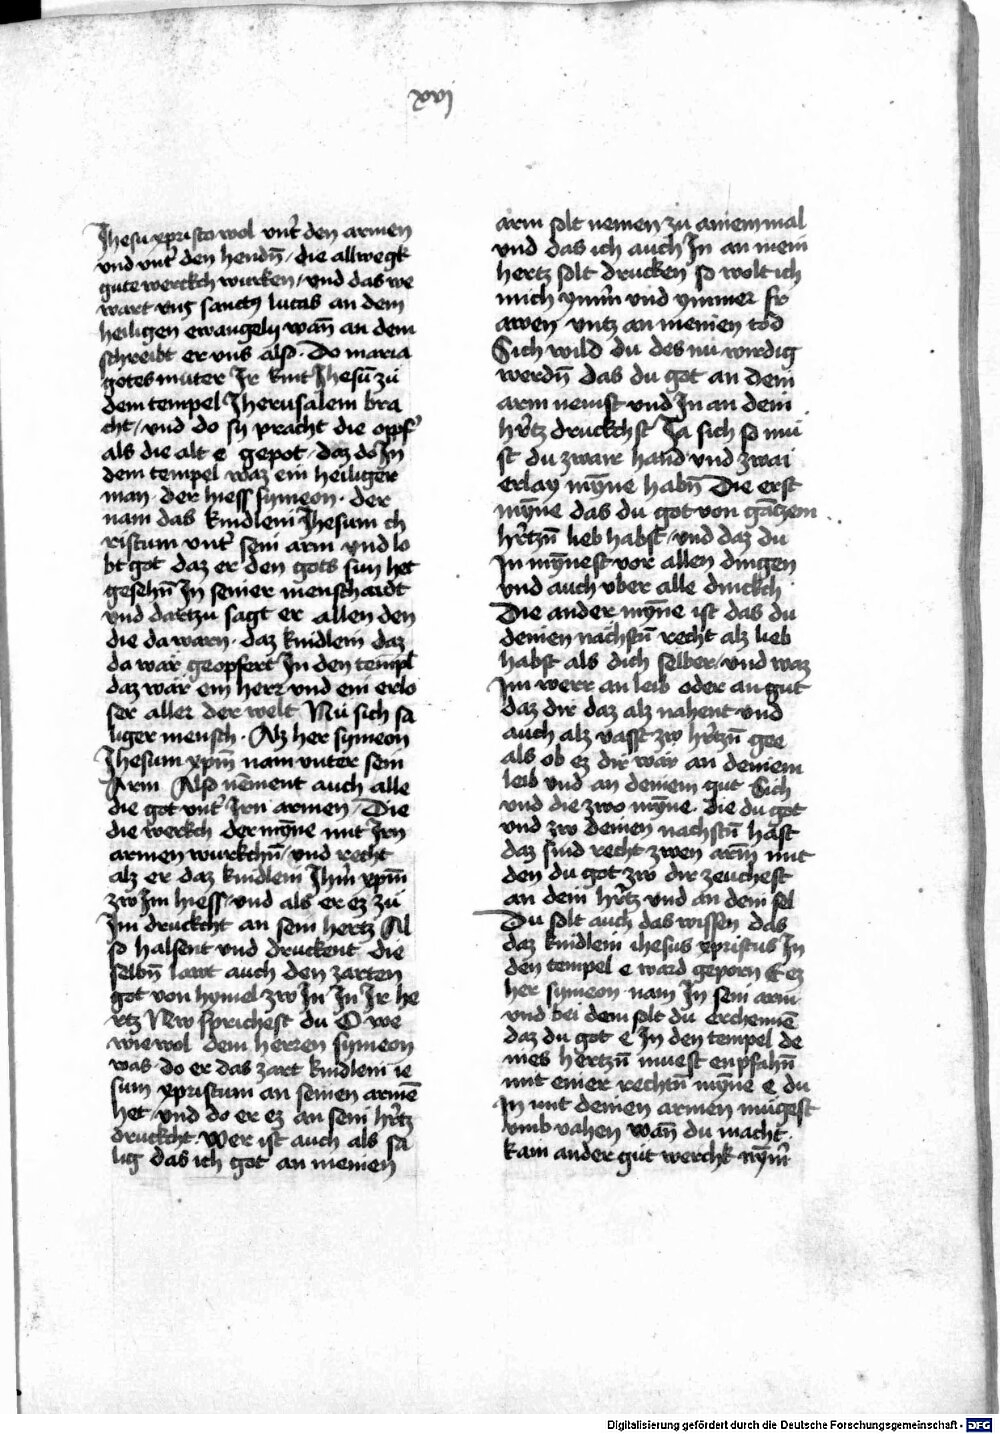 xvj
Jhesu xpristo wol vnt̄ den armen
vnd vnt̄ den hendn̄ / die allwegk
gute werckch wurken / vnd das we
wart vns sanctus lucas an dem
heiligen ewangelij wan̄ an dem
schreibt er vns also · Do maria
gotes muter Jr kint Jhesū zů
dem tempel Jherusalem bra
cht / vnd do sy pracht die opf̄
als die alt e gepot / daz do In
dem tempel waz ein heiliger
man · der hiess symeon · der
nam das kindlein Jhesum ch
ristum vnt̄ sein arm vnd lo
bt got daz er den gots sun het
gesehn̄ In seiner menschaidt
vnd dartzu sagt er allen den
die da warn · daz kindlein daz
da wär geopfert In den templ
daz wär ein herr vnd ein erlo
ser aller der welt Nu sich sä
liger mensch · Alz her symeon
Jhesum xpm̄ nam vnter sein
Arm Also nēment auch alle
die got vnt̄ Irn armen Die
die werkch der mȳne mit Irn
armen wurkchn̄ / vnd recht
alz er daz kindlein Jhm̄ xpm̄
zw Im hiess / vnd als er ez zů
Im druckcht an sein hertz Al
so halsent vnd druckent die
selbn̄ lawt auch den zarten
got von hymel zw In In Ir he
rtz Nw sprichest du O we
wie wol dem herren symeon
was · do er das zart kindlein ie
sum xpristum an seinen armē
het / vnd do er ez an sein hr̄tz
druckcht · Wer ist auch als sä
lig das ich got an meinen
arm solt nemen zu ainem mal
vnd das ich auch In an mein
hertz solt drucken so wolt ich
mich ymm̄ vnd ymmer fr
awen vntz an meinen tod
Sich wild du des nu wirdig
werdn̄ das du got an dem
arm nemst vnd In an dein
hr̄tz druckchst Ja sich so mu
st du zwair hand vnd zwai
erlay mȳne habn̄ Die erst
mȳne das du got von gātzem
hr̄tzn̄ lieb habst / vnd daz du
In mȳnest vor allen dingen
vnd auch vber alle dinckch
Die ander mȳne ist das du
deinen nächstn̄ recht alz lieb
habst als dich selber / vnd waz
Im werr an leib oder an gut
daz dir daz alz nahent vnd
auch alz vasst zw hr̄tzn̄ gee
als ob ez dir wär an deinem
leib vnd an deinem gut Sich
vnd die zwo mȳne · die du got
vnd zw deinen nachstn̄ hast
daz sind recht zwen arm̄ mit
den du got zw dir zeuchest
an dein hr̄tz vnd an dein sel
Du solt auch das wissen das
daz kindlein ihesus xpristus In
den tempel e ward geporn E ez
her symeon nam In sein arm
vnd bei dem solt du erchennē
daz du got e In den tempel de
ines hertzn̄ muest enpfahn̄
mit einer rechtn̄ mȳne e du
In mit deinen armen mügest
vmb vahen wan̄ du macht
kain ander gut werchk nȳm̄
Digitalisierung gefördert durch die Deutsche Forschungsgemeinschaft - DFG